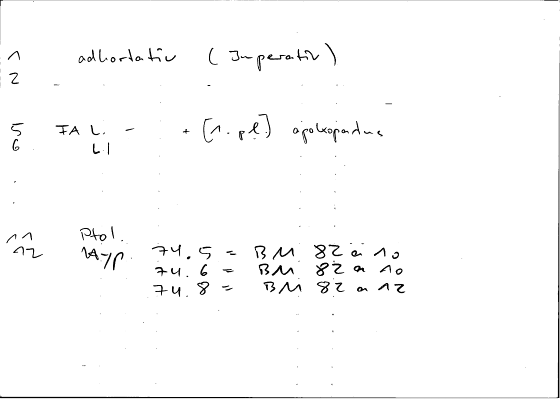 1 adhortativ (Imperativ)
2
5 IA L. - + [1. pl.]
6 L I
11 Ptol.
12 Hyp 74.5 = BM 82 a 10
74.6 = BM 82 a 10
74.8 = BM 82 a 12